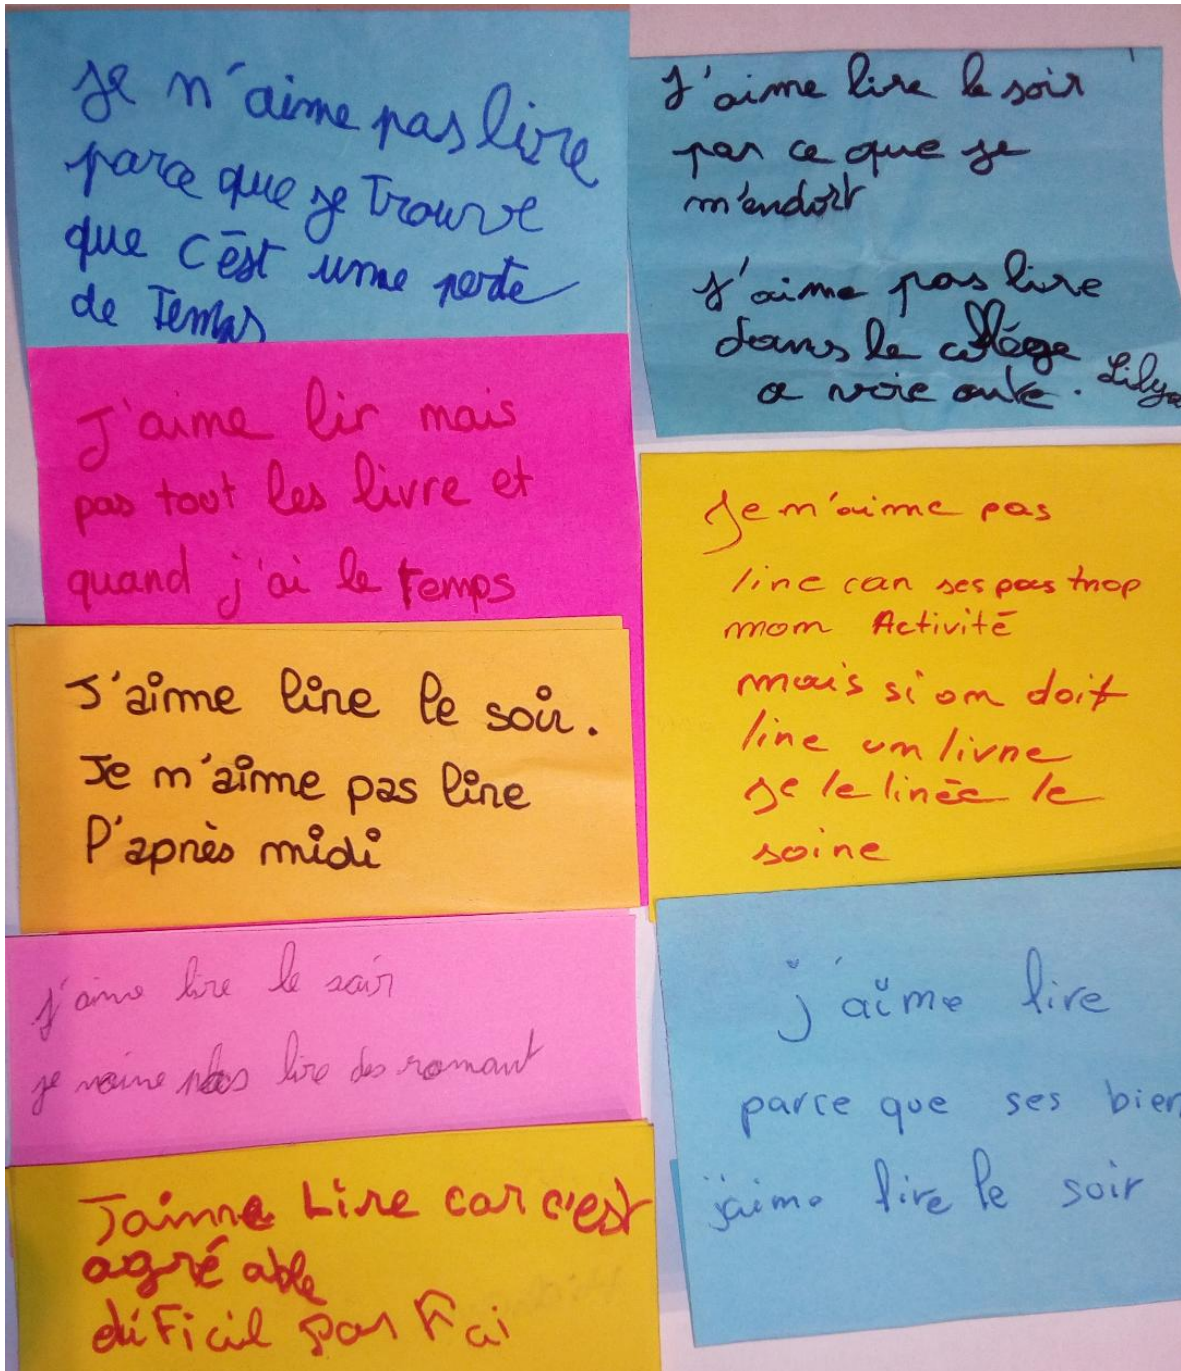 Je n'aime pas lire
parce que je Trouve
que c'est une perte
de Temps
J'aime lir mais
pas tout les livre et
quand j'ai le temps
J'aime lire le soir.
Je n'aime pas lire
l'après midi
j'aime lire le soir
je naime pas lire des romant
J'aime Lire car c'est
agré able
dificil par
J'aime lire le soir
par ce que je
m'endort
J'aime pas lire
dans le collège
a voie aute. Lilya
Je n'aime pas
lire car ses pas trop
mon Activité
mais si on doit
lire un livre
je le lirée le
soire
j'aime lire
parce que ses bien
j'aime lire le soir